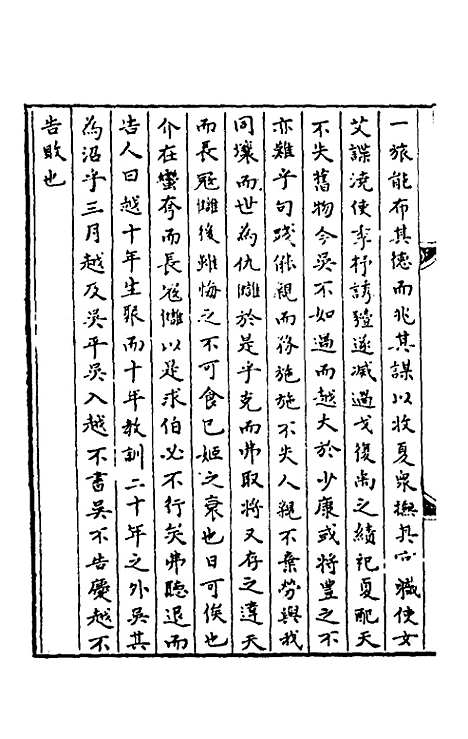 一旅能布其德而兆其謀以收夏衆撫其官職使女
艾諜澆使季杼誘豷遂滅過戈復禹之績祀夏配天
不失舊物今吳不如過而越大於少康或將豊之不
亦難乎句踐能親而務施施不失人親不棄勞與我
同壤而世為仇讎於是乎克而弗取將又存之違天
而長寇讎後雖悔之不可食已姬之衰也日可俟也
介在蠻夷而長寇讎以是求伯必不行矣弗聽退而
告人曰越十年生聚而十年教訓二十年之外吳其
為沼乎三月越及吳平吳入越不書吳不告慶越不
告敗也